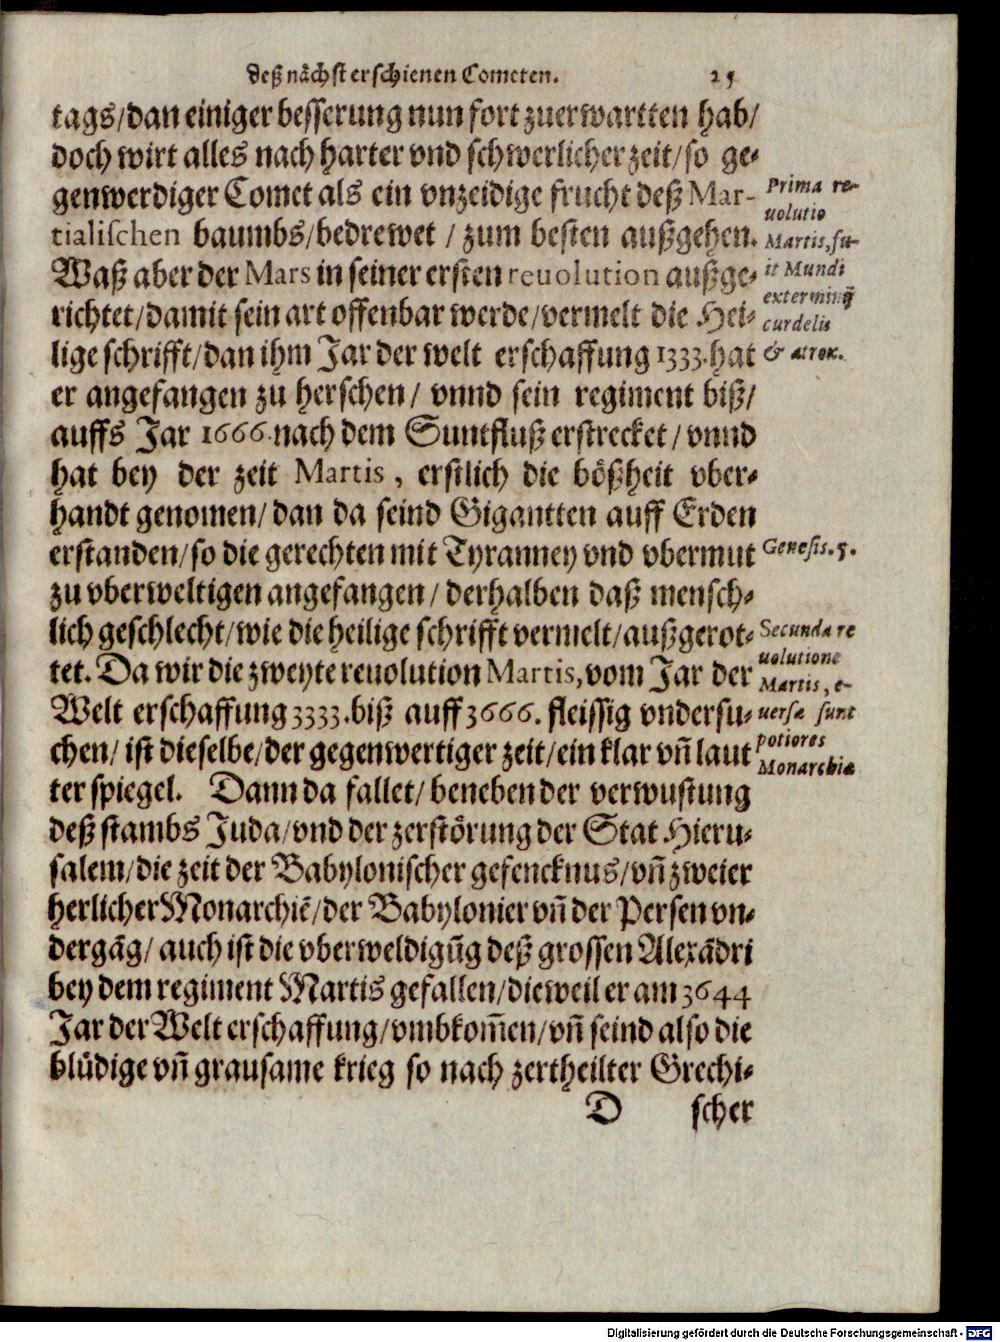 deß nächst erschienen Cometen. 25
tags/dan einiger besserung nun fort zuerwartten hab/
doch wirt alles nach harter vnd schwerlicher zeit/so ge-
genwerdiger Comet als ein vnzeidige frucht deß Mar-
tialischen baumbs/bedrewet / zum besten außgehen.
Waß aber der Mars in seiner ersten reuolution außge-
richtet/damit sein art offenbar werde/vermelt die Hei-
lige schrifft/dan ihm Jar der welt erschaffung 1333.hat
er angefangen zu herschen/ vnnd sein regiment biß/
auffs Jar 1666.nach dem Suntfluß erstrecket / vnnd
hat bey der zeit Martis, erstlich die bößheit vber-
handt genomen/ dan da seind Gigantten auff Erden
erstanden/so die gerechten mit Tyranney vnd vbermut
zu vberweltigen angefangen / derhalben daß mensch-
lich geschlecht/wie die heilige schrifft vermelt/außgerot-
tet. Da wir die zweyte reuolution Martis,vom Jar der
Welt erschaffung 3333.biß auff 3666. fleissig vndersu-
chen/ ist dieselbe/der gegenwertiger zeit/ein klar vñ laut
ter spiegel. Dann da fallet/ beneben der verwustung
deß stambs Juda/vnd der zerstörung der Stat Hieru-
salem/die zeit der Babylonischer gefencknus/vñ zweier
herlicher Monarchiẽ/der Babylonier vñ der Persen vn-
dergãg/ auch ist die vberweldigũg deß grossen Alexãdri
bey dem regiment Martis gefallen/dieweil er am 3644
Jar der Welt erschaffung/vmbkom̃en/vñ seind also die
blüdige vñ grausame krieg so nach zertheilter Grechi-
D scher
Prima re-
uolutio
Martis,fu-
it Mundi
exterminij
curdelis
& atrox.
Genesis.5.
Secunda re
uolutione
Martis, e-
uersæ sunt
potiores
Monarchiæ
Digitalisierung gefördert durch die Deutsche Forschungsgemeinschaft - DFG